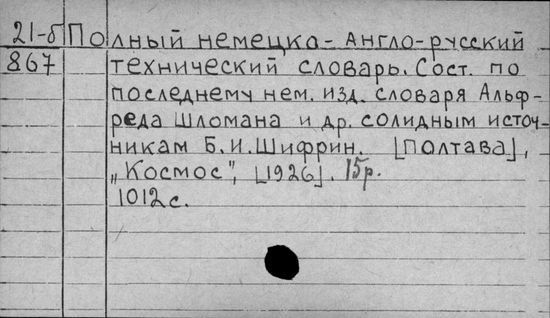 21-б Полный немецко-Англо-русский
867 технический словарь. Сост. по
последнему нем. изд. словаря Альф-
реда Шломана и др. солидным источ-
никам Б.И.Шифрин. [Полтава],
„Космос", [1926]. 15р.
1012 с.